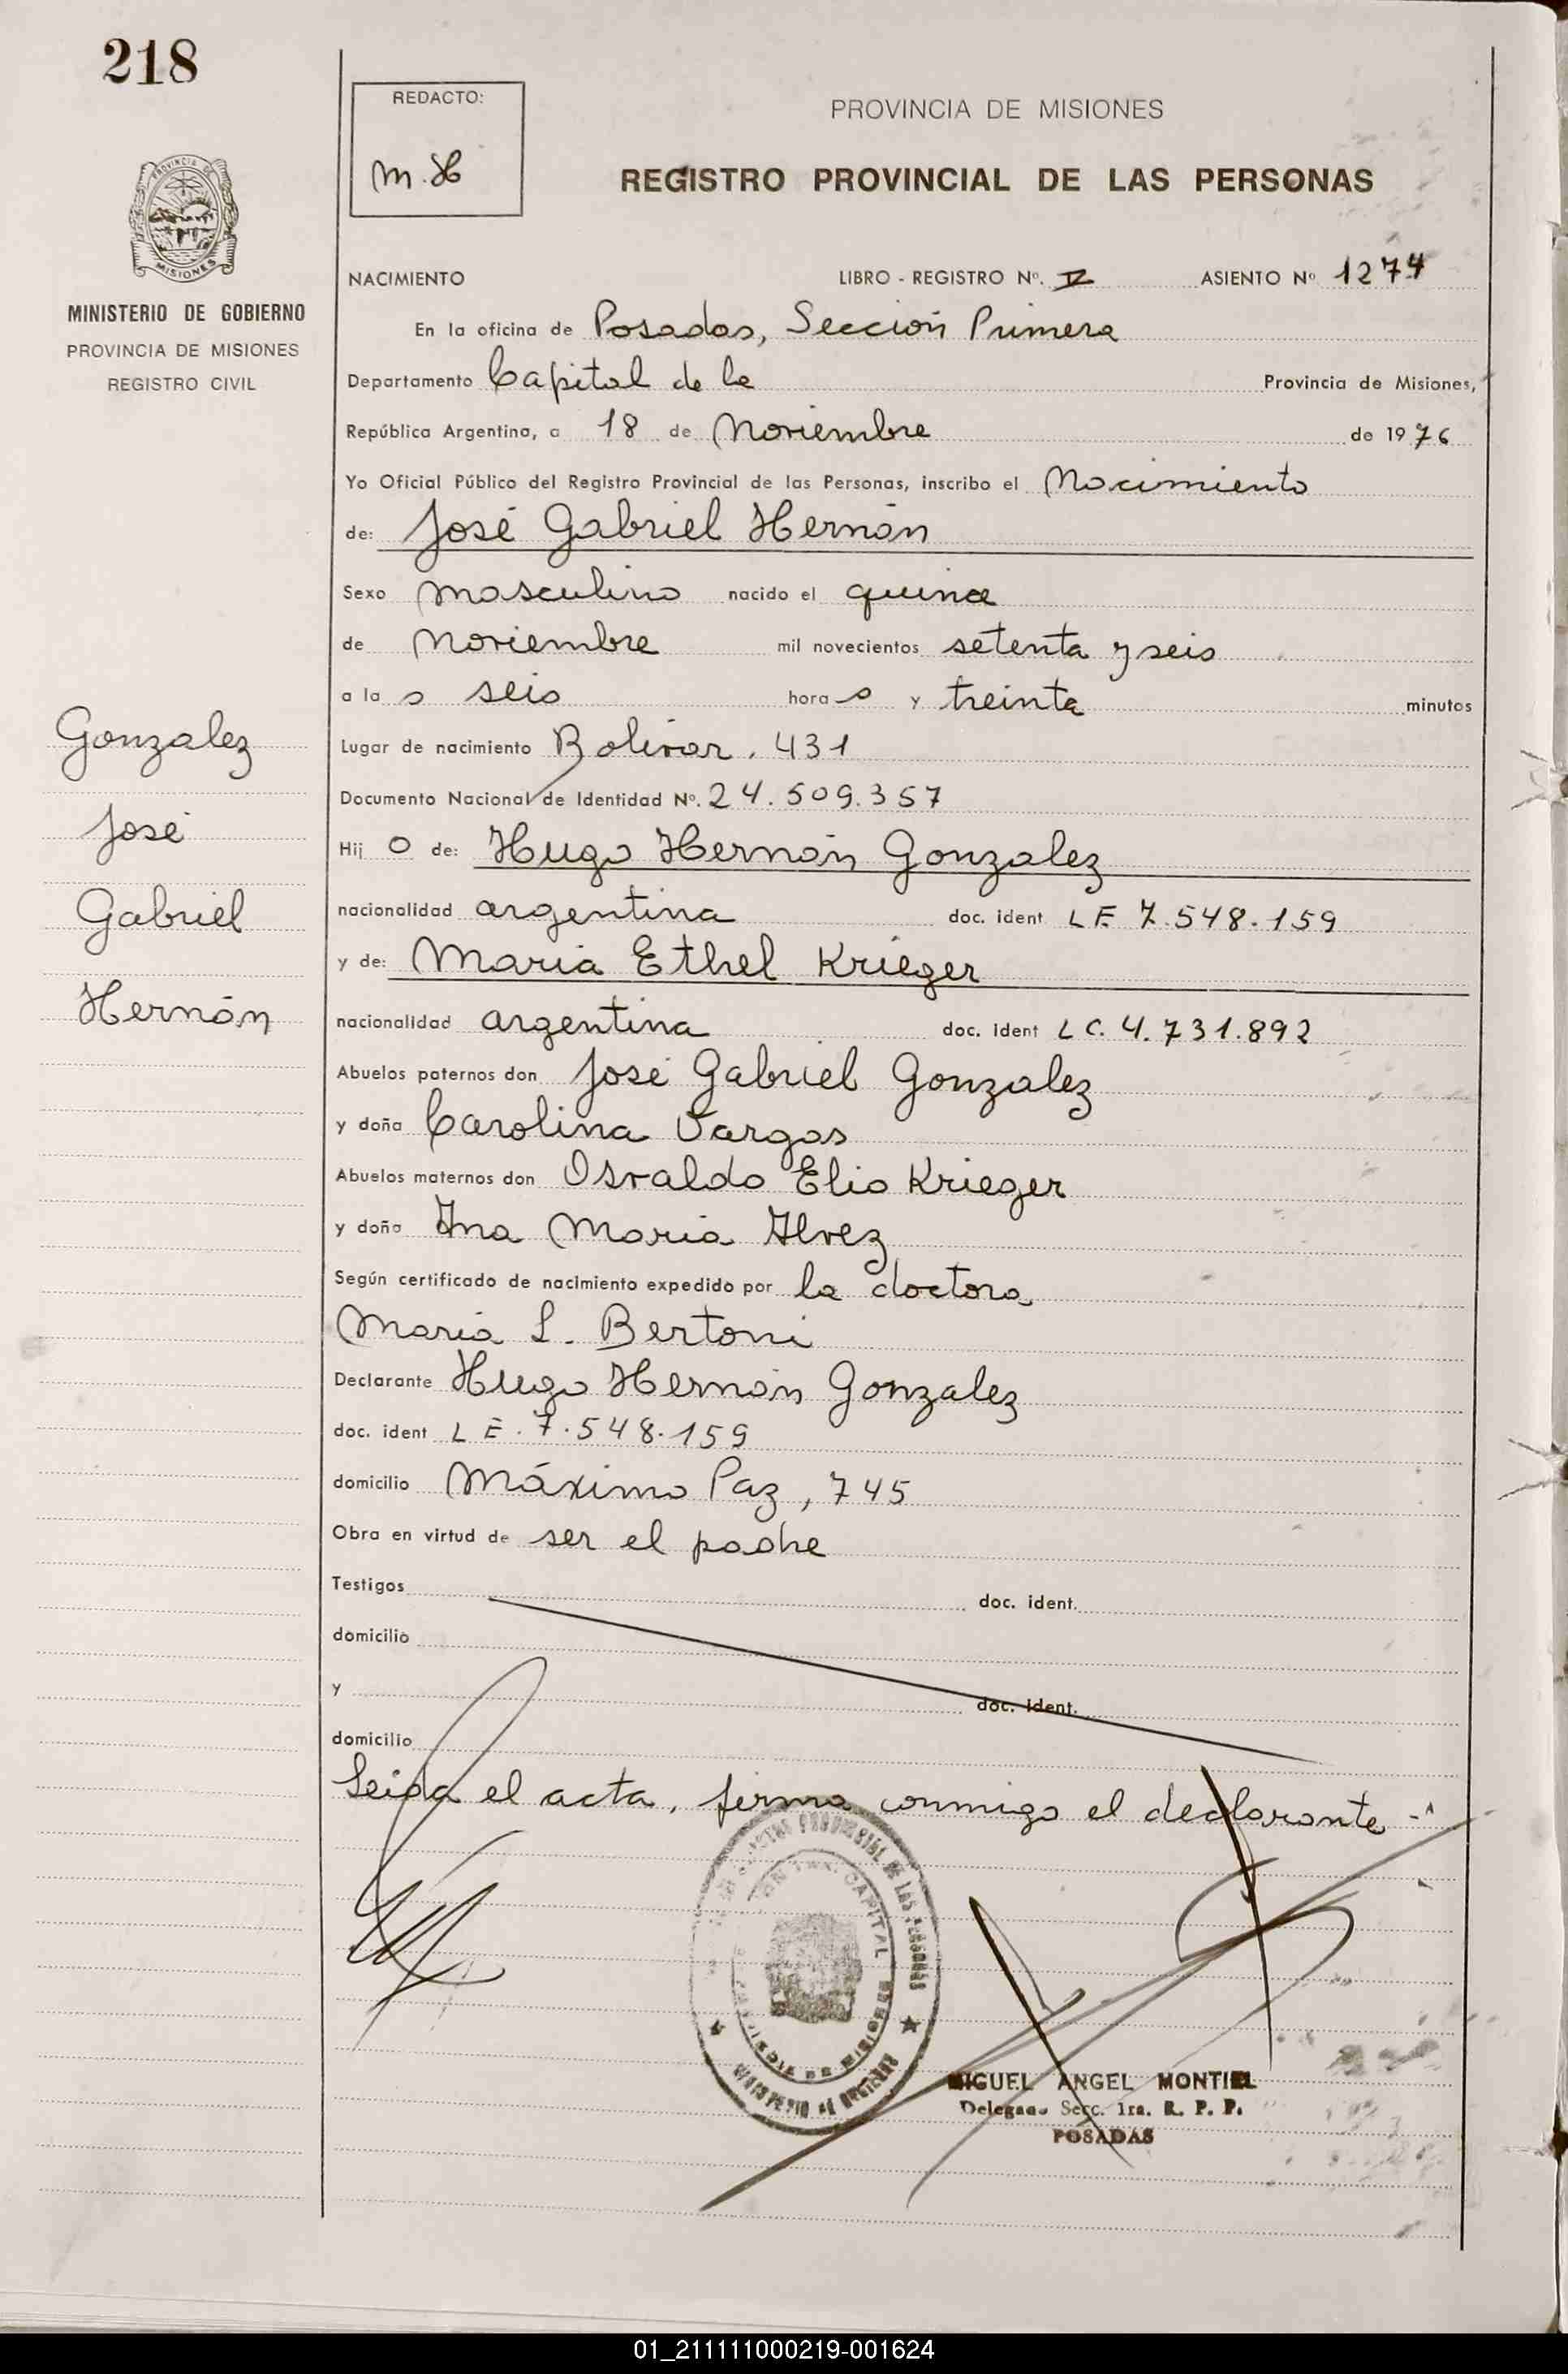 218
REDACTO:
M.H
PROVINCIA DE MISIONES
REGISTRO PROVINCIAL DE LAS PERSONAS
PROVINCIA DE
MISIONES
MINISTERIO DE GOBIERNO
PROVINCIA DE MISIONES
REGISTRO CIVIL
NACIMIENTO LIBRO - REGISTRO Nº. V ASIENTO Nº 1274
En la oficina de Posadas, Sección Primera
Departamento Capital de la Provincia de Misiones,
República Argentina, a 18 de Noviembre de 1976
Yo Oficial Público del Registro Provincial de las Personas, inscribo el Nacimiento
de: José Gabriel Hernán
Sexo masculino nacido el quince
de Noviembre mil novecientos setenta y seis
a la s seis hora s y treinta minutos
Lugar de nacimiento Bolívar, 431
Documento Nacional de Identidad Nº. 24.509.357
Hij o de: Hugo Hernán Gonzalez
nacionalidad argentina doc. ident L E. 7.548.159
y de: María Ethel Krieger
nacionalidad argentina doc. ident L C. 4.731.892
Abuelos paternos don José Gabriel Gonzalez
y doña Carolina Vargas
Abuelos maternos don Osvaldo Elio Krieger
y doña Ana María Alvez
Según certificado de nacimiento expedido por la doctora
María L. Bertoni
Declarante Hugo Hernán Gonzalez
doc. ident L E. 7.548.159
domicilio Máximo Paz, 745
Obra en virtud de ser el padre
Testigos doc. ident.
domicilio
y doc. ident.
domicilio
Leida el acta, firma conmigo el declarante.-
Gonzalez
José
Gabriel
Hernán
REGISTRO PROVINCIAL DE LAS PERSONAS
CAPITAL
PROVINCIA DE MISIONES
MINISTERIO DE GOBIERNO
MIGUEL ANGEL MONTIEL
Delegado Secc. 1ra. R. P. P.
POSADAS
01_211111000219-001624